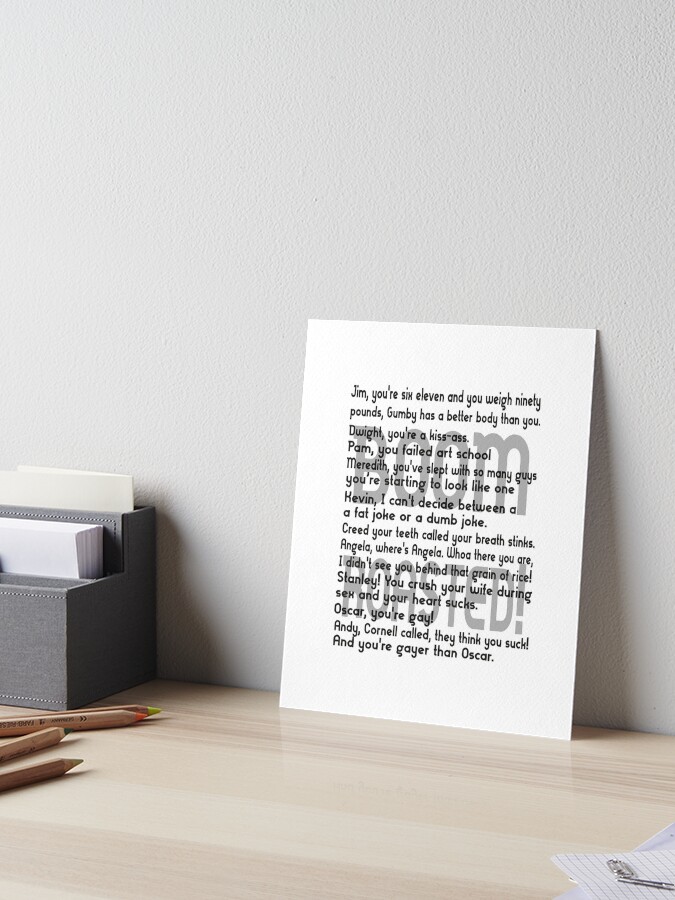 Jim, you're six eleven and you weigh ninety
pounds, Gumby has a better body than you.
Dwight, you're a kiss-ass.
BOOM
Pam, you failed art school
Meredith, you've slept with so many guys
you're starting to look like one
Kevin, I can't decide between a
a fat joke or a dumb joke.
Creed your teeth called your breath stinks.
Angela, where's Angela. Whoa there you are,
I didn't see you behind that grain of rice!
Stanley! You crush your wife during
sex and your heart sucks.
ROASTED!
Oscar, you're gay!
Andy, Cornell called, they think you suck!
And you're gayer than Oscar.